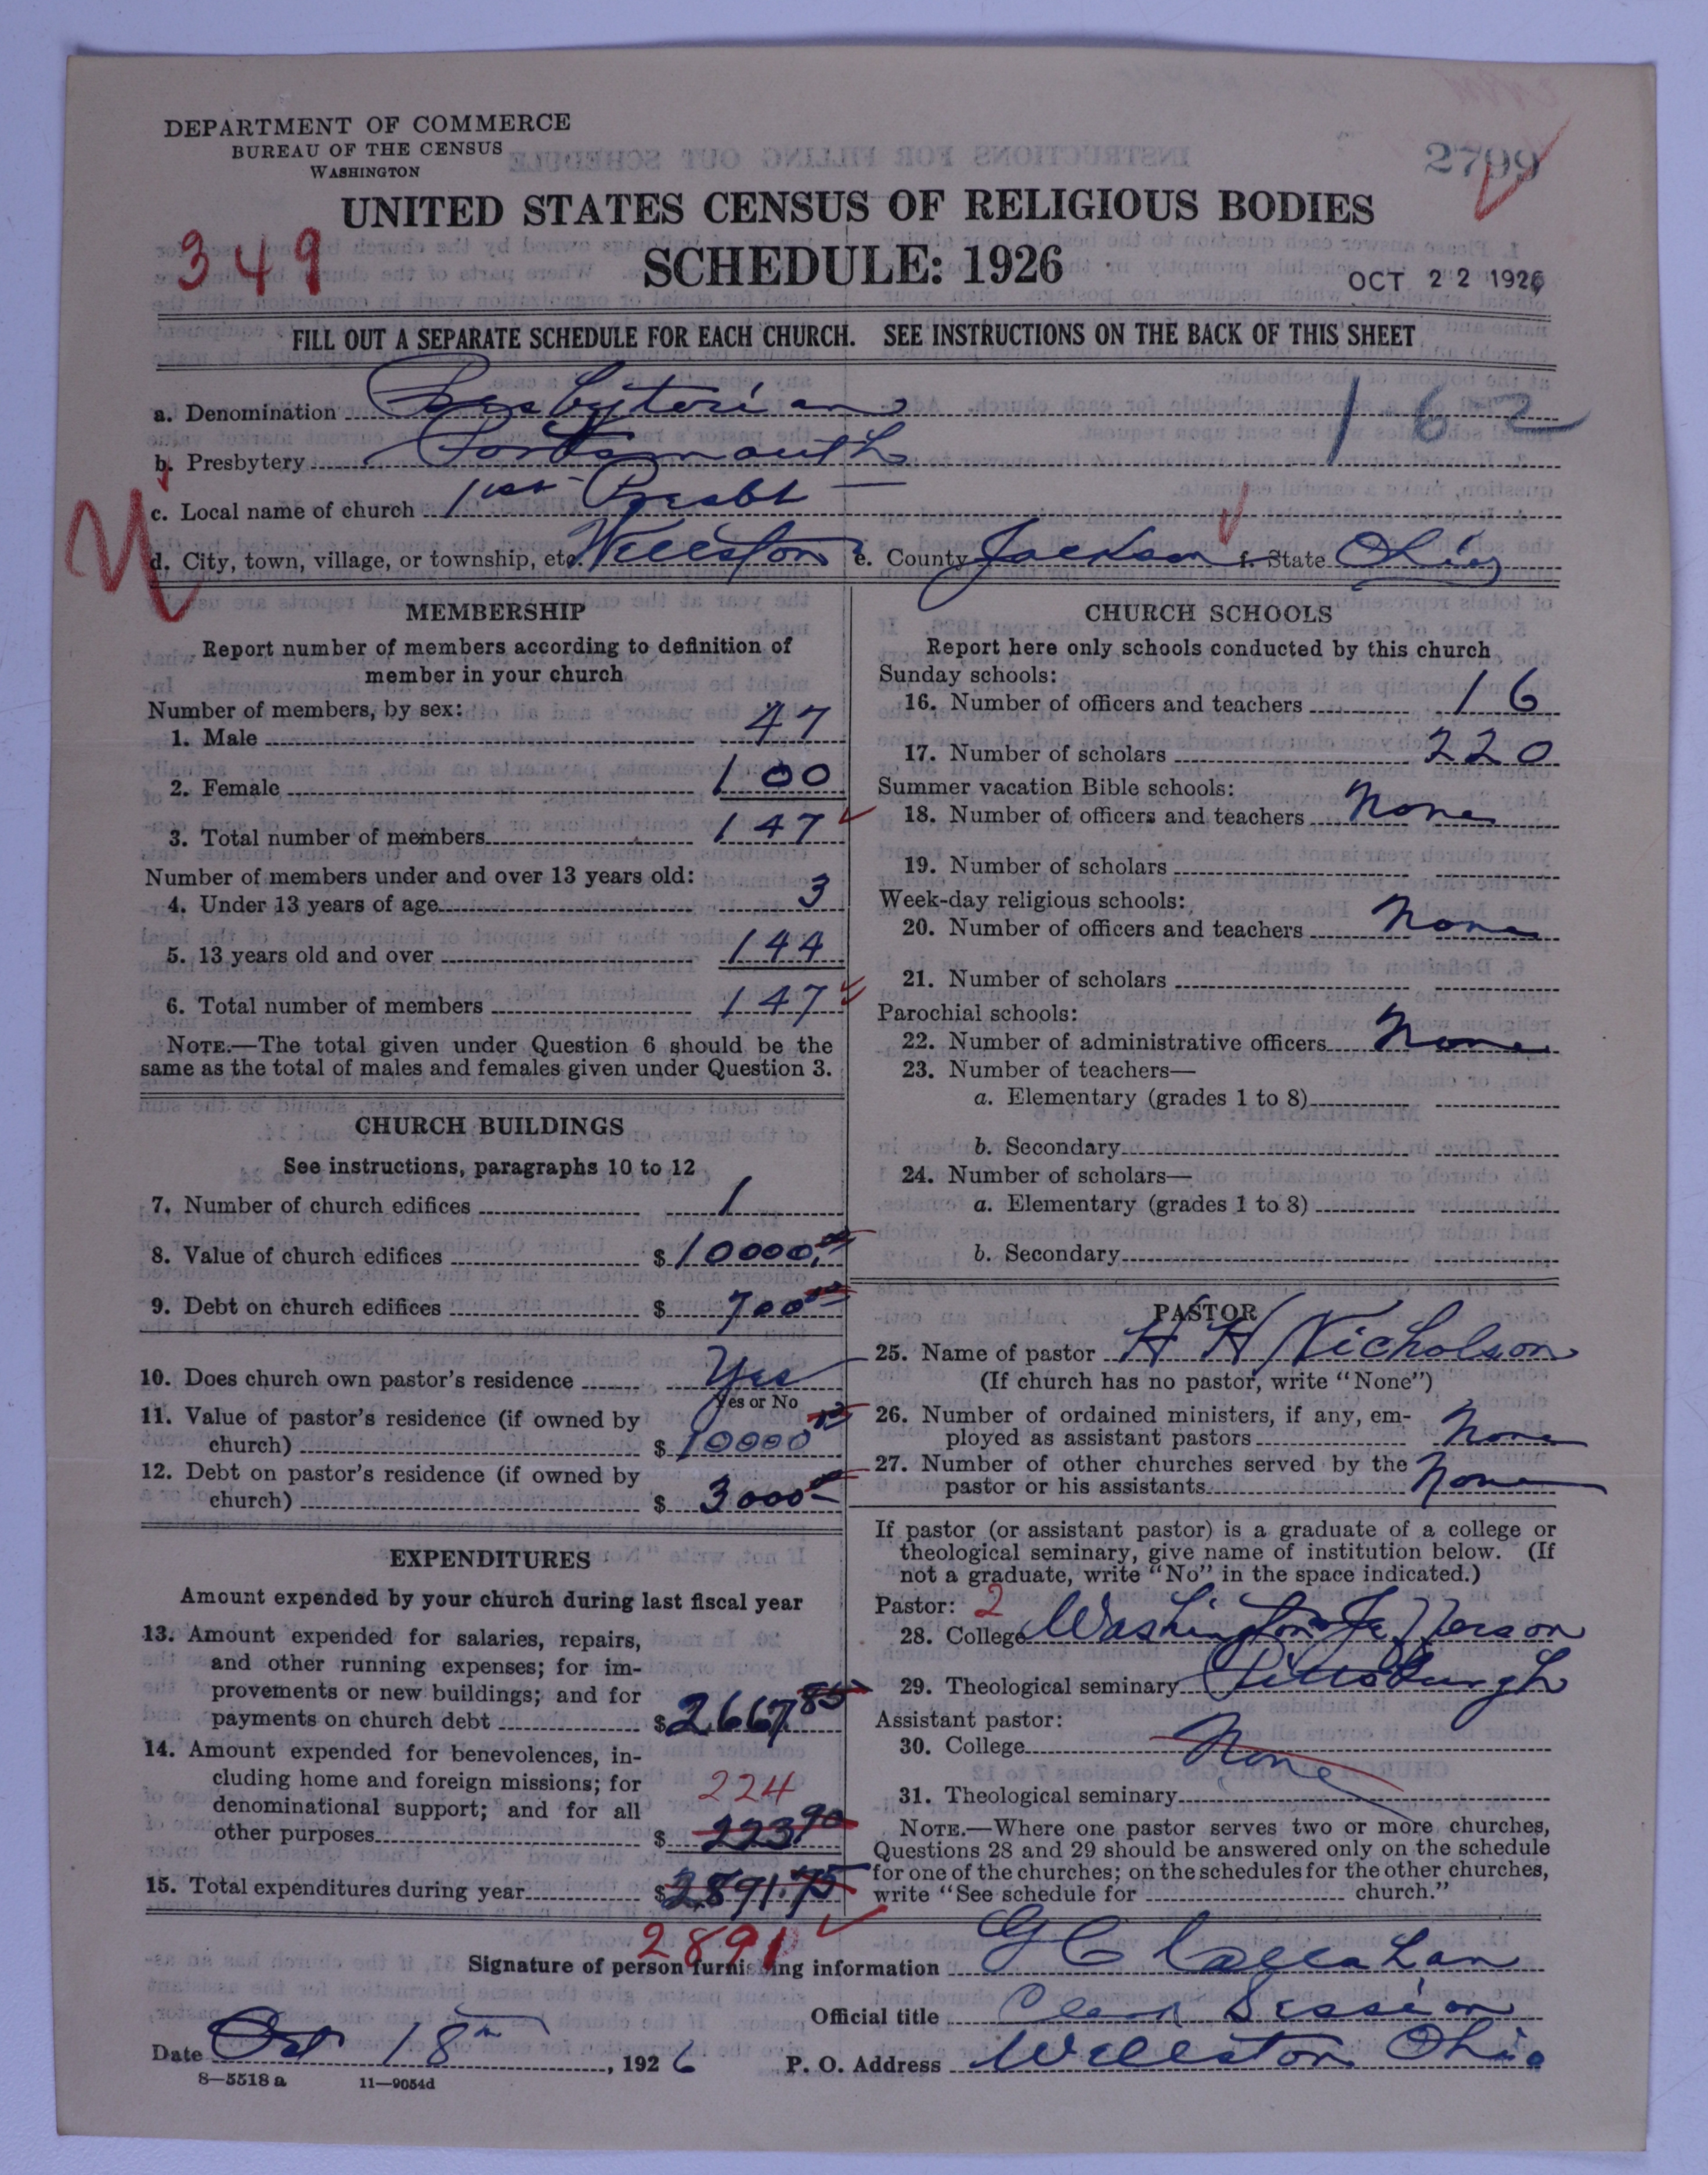 DEPARTMENT OF COMMERCE
BUREAU OF THE CENSUS
WASHINGTON
2799
UNITED STATES CENSUS OF RELIGIOUS BODIES
349
SCHEDULE: 1926
OCT 22 1926
FILL OUT A SEPARATE SCHEDULE FOR EACH CHURCH. SEE INSTRUCTIONS ON THE BACK OF THIS SHEET
a. Denomination Presbyterian
162
b. Presbytery Portsmouth
c. Local name of church 1st Presbt
d. City, town, village, or township, etc. Wellston e. County Jackson f. State Ohio
MEMBERSHIP
Report number of members according to definition of
member in your church
Number of members, by sex:
1. Male 47
2. Female 100
3. Total number of members 147
Number of members under and over 13 years old:
4. Under 13 years of age 3
5. 13 years old and over 144
6. Total number of members 147
NOTE.—The total given under Question 6 should be the
same as the total of males and females given under Question 3.
CHURCH BUILDINGS
See instructions, paragraphs 10 to 12
7. Number of church edifices 1
8. Value of church edifices $10000.00
9. Debt on church edifices $700.00
10. Does church own pastor's residence Yes
Yes or No
11. Value of pastor's residence (if owned by
church) $10000
12. Debt on pastor's residence (if owned by
church) $3000
EXPENDITURES
Amount expended by your church during last fiscal year
13. Amount expended for salaries, repairs,
and other running expenses; for im-
provements or new buildings; and for
payments on church debt $2667.85
14. Amount expended for benevolences, in-
cluding home and foreign missions; for
224
denominational support; and for all
other purposes $223.90
15. Total expenditures during year $2891.75
2891
CHURCH SCHOOLS
Report here only schools conducted by this church
Sunday schools:
16. Number of officers and teachers 16
17. Number of scholars 220
Summer vacation Bible schools:
18. Number of officers and teachers None
19. Number of scholars
Week-day religious schools:
20. Number of officers and teachers None
21. Number of scholars
Parochial schools:
22. Number of administrative officers None
23. Number of teachers—
a. Elementary (grades 1 to 8)
b. Secondary
24. Number of scholars—
a. Elementary (grades 1 to 8)
b. Secondary
PASTOR
25. Name of pastor H H Nicholson
(If church has no pastor, write "None")
26. Number of ordained ministers, if any, em-
ployed as assistant pastors None
27. Number of other churches served by the
pastor or his assistants None
If pastor (or assistant pastor) is a graduate of a college or
theological seminary, give name of institution below. (If
not a graduate, write "No" in the space indicated.)
Pastor: 2
28. College Washington Jefferson
29. Theological seminary Pittsburgh
Assistant pastor:
30. College None
31. Theological seminary
NOTE.—Where one pastor serves two or more churches,
Questions 28 and 29 should be answered only on the schedule
for one of the churches; on the schedules for the other churches,
write "See schedule for church."
Signature of person furnishing information G C Callahan
Official title Clerk Session
Date Oct 18th, 1926 P. O. Address Wellston Ohio
8—5518 a 11—9054d